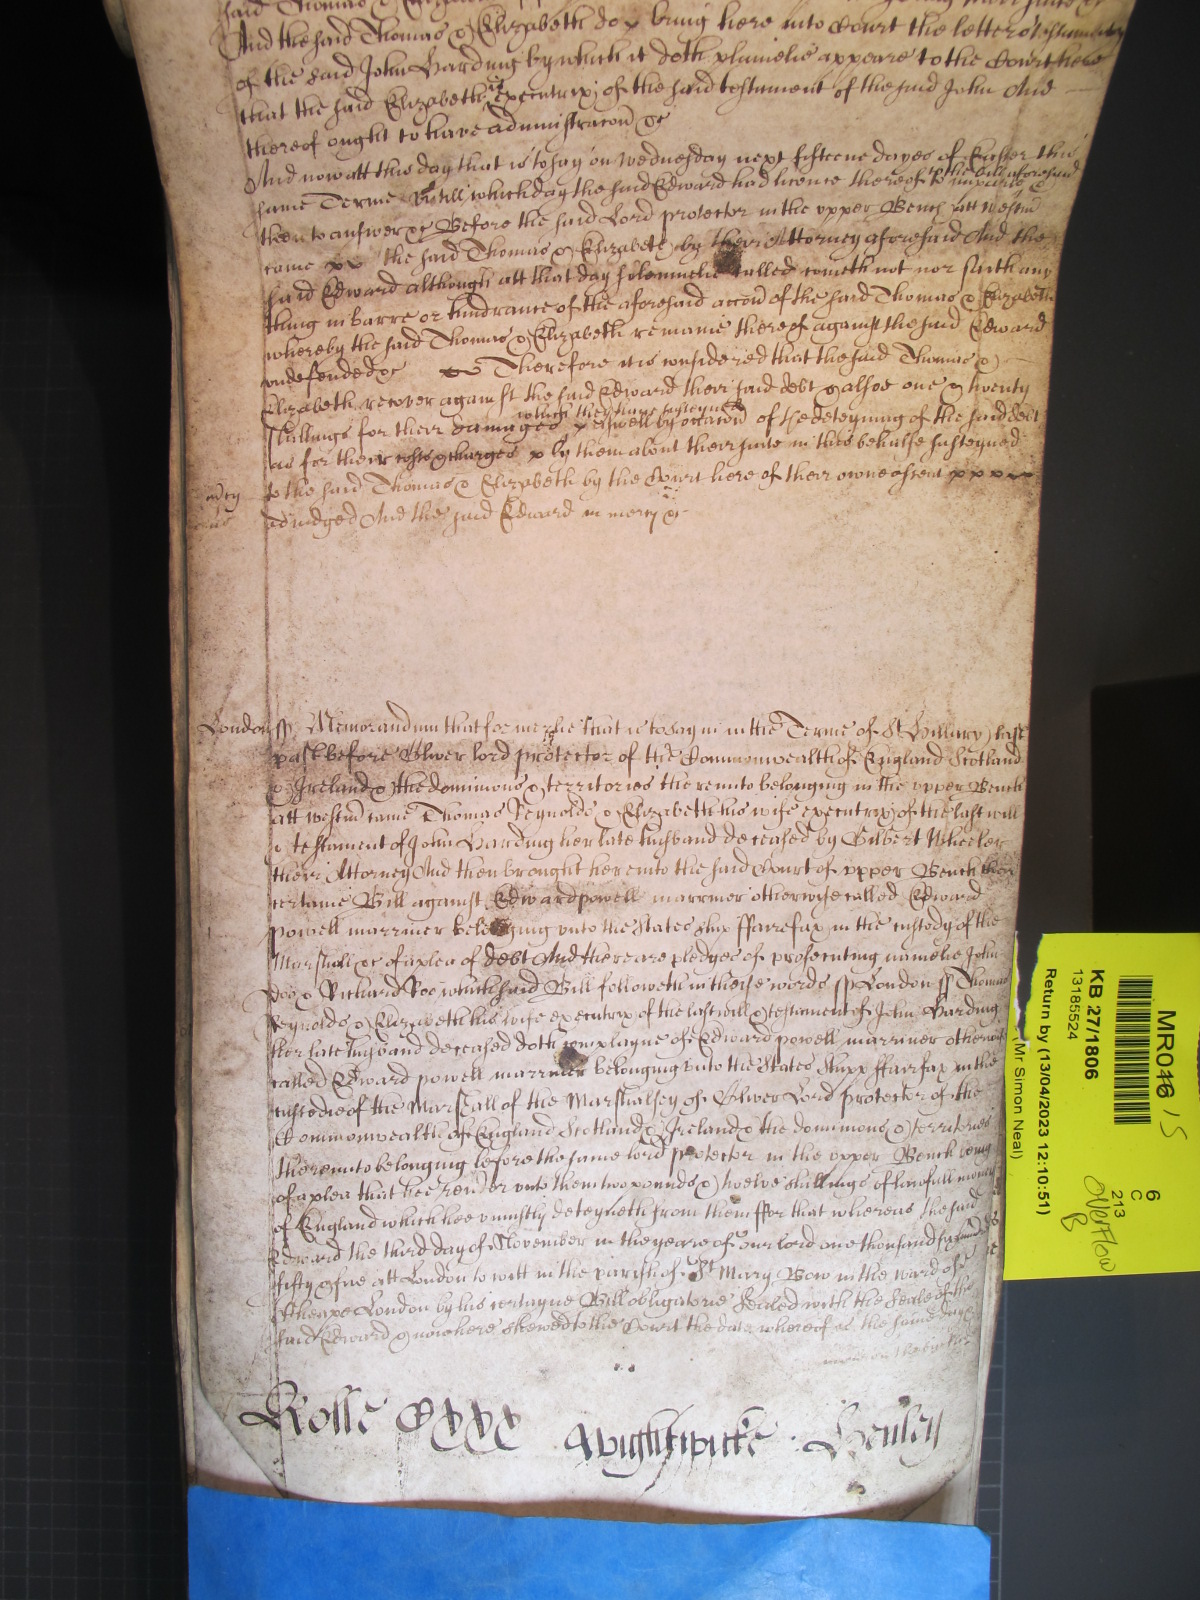 said Thomas & Elizabeth
And the said Thomas & Elizabeth do x bring here into Court the letters testamentary
of the said John Harding by which it doth plainelie appeare to the Court here
that the said Elizabeth is executrix of the said testament of the said John And
thereof ought to have administracon &c
And now att this day that is to say on wednesday next fifteene dayes of Easter this
same Terme Untill which day the said Edward had licence thereof to the bill aforesaid to imparle &
then to answer &c Before the said Lord protector in the upper Bench att westm
came xx the said Thomas & Elizabeth by their Attorney aforesaid And the
said Edward although att that day solemnelie called cometh not nor saith any
thing in barre or hindrance of the aforesaid accon of the said Thomas & Elizabeth
whereby the said Thomas & Elizabeth remaine thereof against the said Edward
undefended &c Therefore it is considered that the said Thomas &
Elizabeth recover against the said Edward their said debt & alsoe one & twenty
shillings for their damages which they have susteyned x aswell by occacon of the deteyning of the said debt
as for their costs & charges x by them about their suite in this behalfe susteyned
to the said Thomas & Elizabeth by the Court here of their owne assent x x x x
adiudged And the said Edward in mercy &c
London ss Memorandum that formerlie that is to say in the Terme of St Hillary last
past before Oliver lord protector of the Commonwealth of England Scotland
& Ireland & the dominions & territories thereunto belonging in the upper Bench
att westm came Thomas Reynolds & Elizabeth his wife executrix of the last will
& testament of John Harding her late husband deceased by Gilbert Wheeler
their Attorney And then brought here into the said Court of upper Bench then
certaine Bill against Edward powell marriner otherwise called Edward
powell marriner belonging unto the States shipp ffairefax in the custody of the
Marshall &c of a plea of debt And there are pledges of prosecuting namelie John
Doo & Richard Roo which said Bill followeth in theise words ss London ss Thomas
Reynolds & Elizabeth his wife executrix of the last will & testament of John Harding
her late husband deceased doth complayne of Edward powell marriner otherwise
called Edward powell marriner belonging unto the States Shipp ffairfax in the
custodie of the Marshall of the Marshalsey of Oliver Lord protector of the
Commonwealth of England Scotland & Ireland & the dominions & territories
thereunto belonging before the same lord protector in the upper Bench being
of a plea that hee render unto them two pounds & twelve shillings of lawfull money
of England which hee uniustly deteyneth from them ffor that whereas the said
Edward the third day of November in the yeare of our lord one thousand six hundred
fifty & five att London to witt in the parish of St Mary Bow in the ward of
Cheape London by his certayne Bill obligatorie Sealed with the Seale of the
said Edward & now here shewed to the Court the date whereof is the same day &
Rolle
Wightwicke
Henley
MR016 / 5
KB 27/1806
13185524
Return by (13/04/2023 12:10:51)
(Mr Simon Neal)
6
C
213
Overflow
B